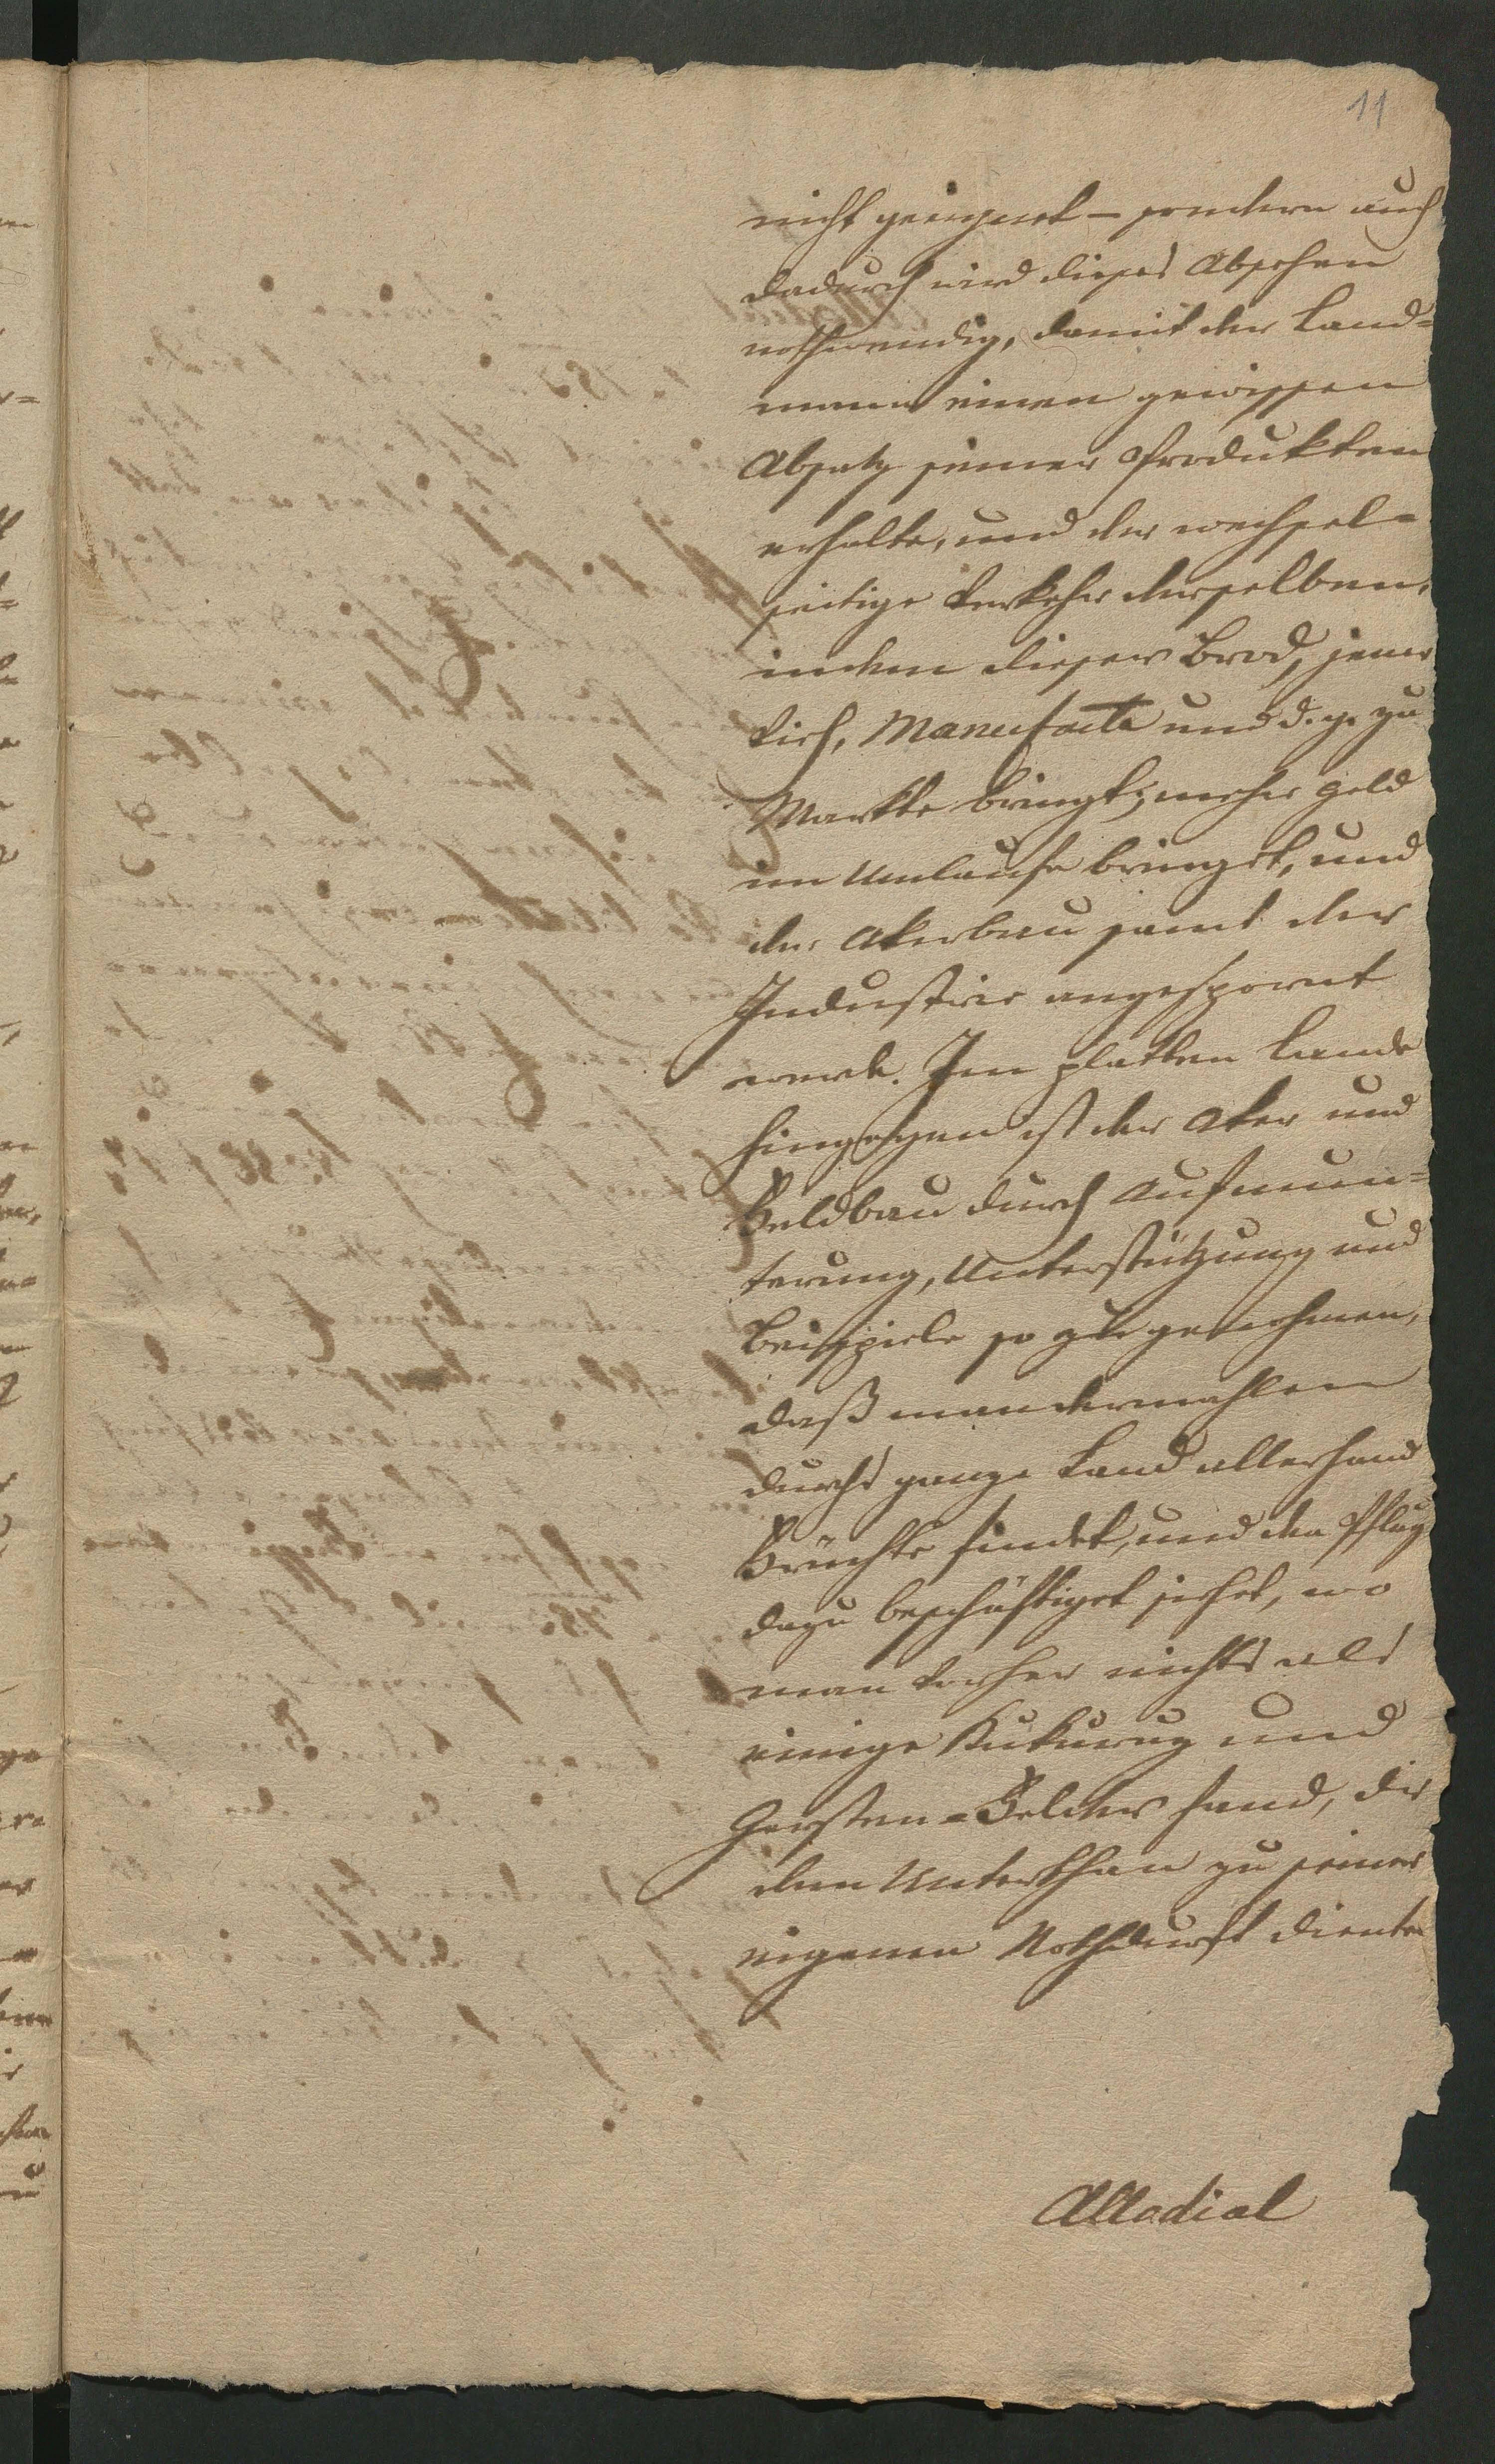 11
nicht geeignet – sondern auch
dadurch wird dieses Absehen
nothwendig, damit der Land=
mann einen gewissen
Absatz seiner Produkten
erhalte, und der wechsel=
seitige Verkehr derselben,
indem dieser Brod, jener
Vieh, Manufacta und d. g. zu
Markte bringt, mehr Geld
im Umlaufe bringet, und
der Akerbau samt der
Industrie angespornt
werde. Im platten Lande
hingegen ist der Aker und
Feldbau durch Aufmun=
terung, Unterstützung und
Beispiele so
daß man dermahlen
durchs ganze Land allerhand
Früchte findet, und den Pflug
dazu beschäftiget siehet, wo
man vorher nichts als
einige Kukuruz und
Gersten=Felder fand, die
dem Unterthan zu seiner
eigenen Nothdurft diente
Allodial